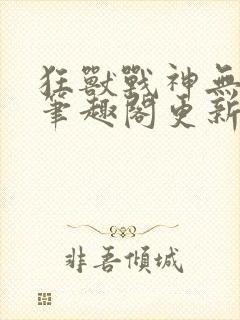 狂獸戰神無
筆趣閣更新
非吾傾城